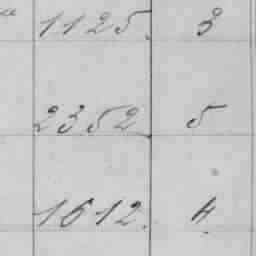 1125. 3
2352. 5
1612. 4